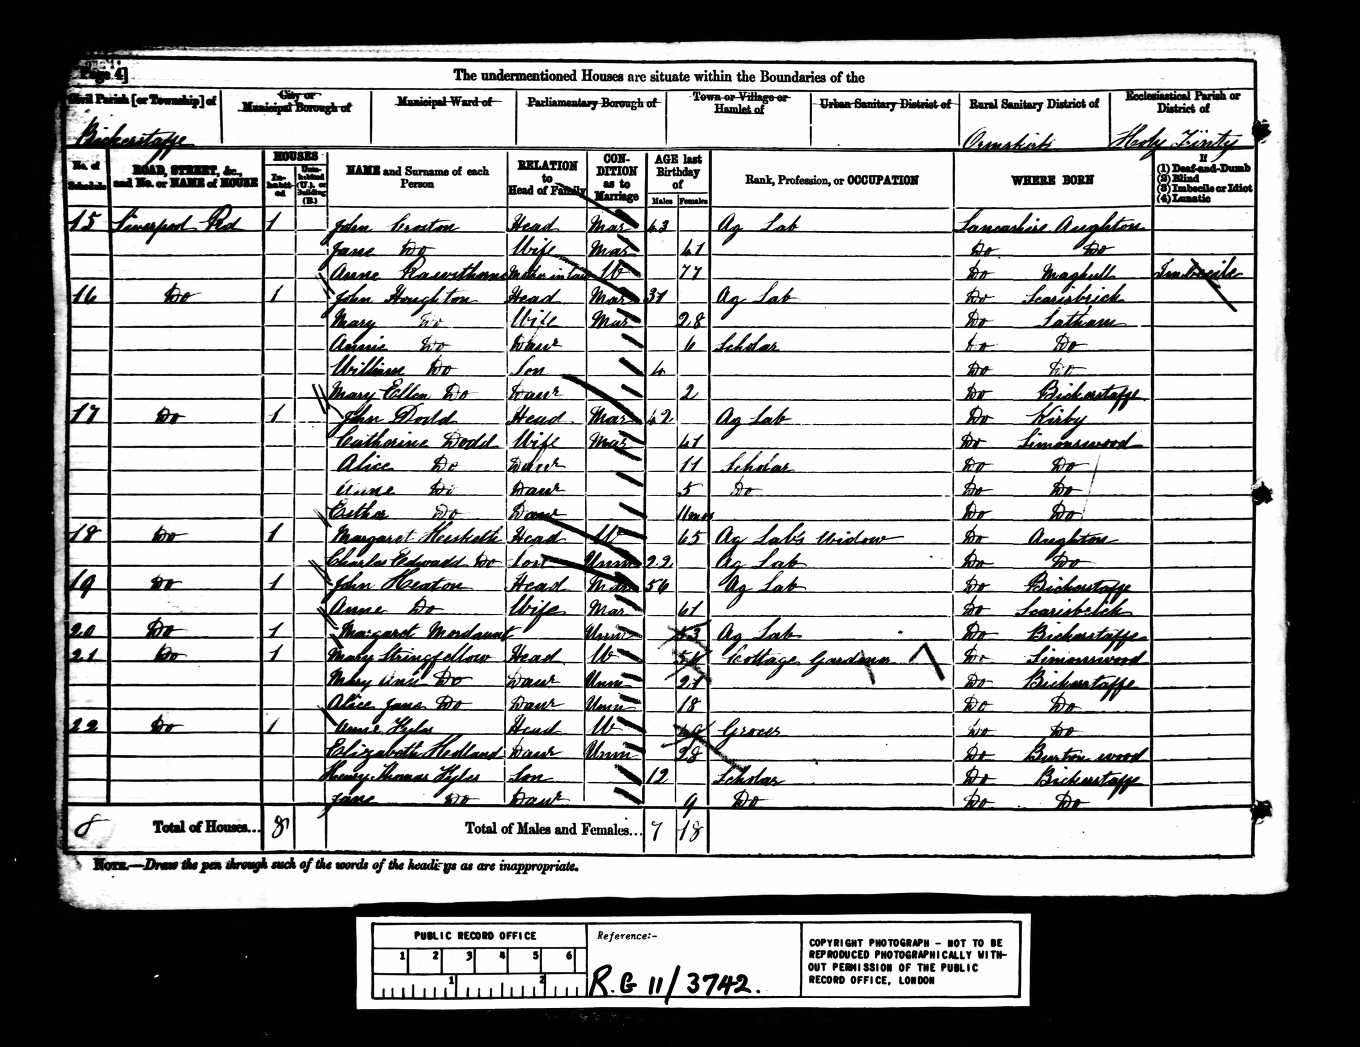 Page 4]
The undermentioned Houses are situate within the Boundaries of the
Civil Parish [or Township] of
City or Municipal Borough of
Municipal Ward of
Parliamentary Borough of
Town or Village or Hamlet of
Urban Sanitary District of
Rural Sanitary District of
Ecclesiastical Parish or District of
Bickerstaffe Ormskirk Holy Trinity
No. of Schedule
ROAD, STREET, &c., and No. or NAME of HOUSE
HOUSES
Inhabited
Uninhabited (U.), or Building (B.)
NAME and Surname of each Person
RELATION to Head of Family
CONDITION as to Marriage
AGE last Birthday of
Males Females
Rank, Profession, or OCCUPATION
WHERE BORN
If
(1) Deaf-and-Dumb
(2) Blind
(3) Imbecile or Idiot
(4) Lunatic
15 Liverpool Rd 1 John Croston Head Mar 43 Ag Lab Lancashire Aughton
Jane Do Wife Mar 41 Do Do
Anne Rawsthorne Mother in law W 77 Do Maghull Imbecile
16 Do 1 John Houghton Head Mar 31 Ag Lab Do Scarisbrick
Mary Do Wife Mar 28 Do Latham
Annie Do Daur 6 Scholar Do Do
William Do Son 4 Do Do
Mary Ellen Do Daur 2 Do Bickerstaffe
17 Do 1 John Dodd Head Mar 42 Ag Lab Do Kirby
Catherine Dodd Wife Mar 41 Do Simonswood
Alice Do Daur 11 Scholar Do Do
Anne Do Daur 5 Do Do Do
Esther Do Daur 11 mos Do Do
18 Do 1 Margaret Hesketh Head W 65 Ag Labs Widow Do Aughton
Charles Edward Do Son Unm 22 Ag Lab Do Do
19 Do 1 John Heaton Head Mar 56 Ag Lab Do Bickerstaffe
Anne Do Wife Mar 61 Do Scarisbrick
20 Do 1 Margaret Mordaunt Unm 53 Ag Lab Do Bickerstaffe
21 Do 1 Mary Stringfellow Head W Cottage Gardener Do Simonswood
Mary Ann Do Daur Unm 21 Do Bickerstaffe
Alice Jane Do Daur Unm 18 Do Do
22 Do 1 Anne Head W 49 Grocer Do Do
Elizabeth Hedland Daur Unm 28 Do Burton wood
Henry Thomas Son 12 Scholar Do Bickerstaffe
Jane Do Daur 9 Do Do Do
8 Total of Houses... 8 Total of Males and Females... 7 18
NOTE.—Draw the pen through such of the words of the headings as are inappropriate.
PUBLIC RECORD OFFICE
1 2 3 4 5 6
1 2
Reference:-
R.G 11/3742.
COPYRIGHT PHOTOGRAPH - NOT TO BE
REPRODUCED PHOTOGRAPHICALLY WITH-
OUT PERMISSION OF THE PUBLIC
RECORD OFFICE, LONDON